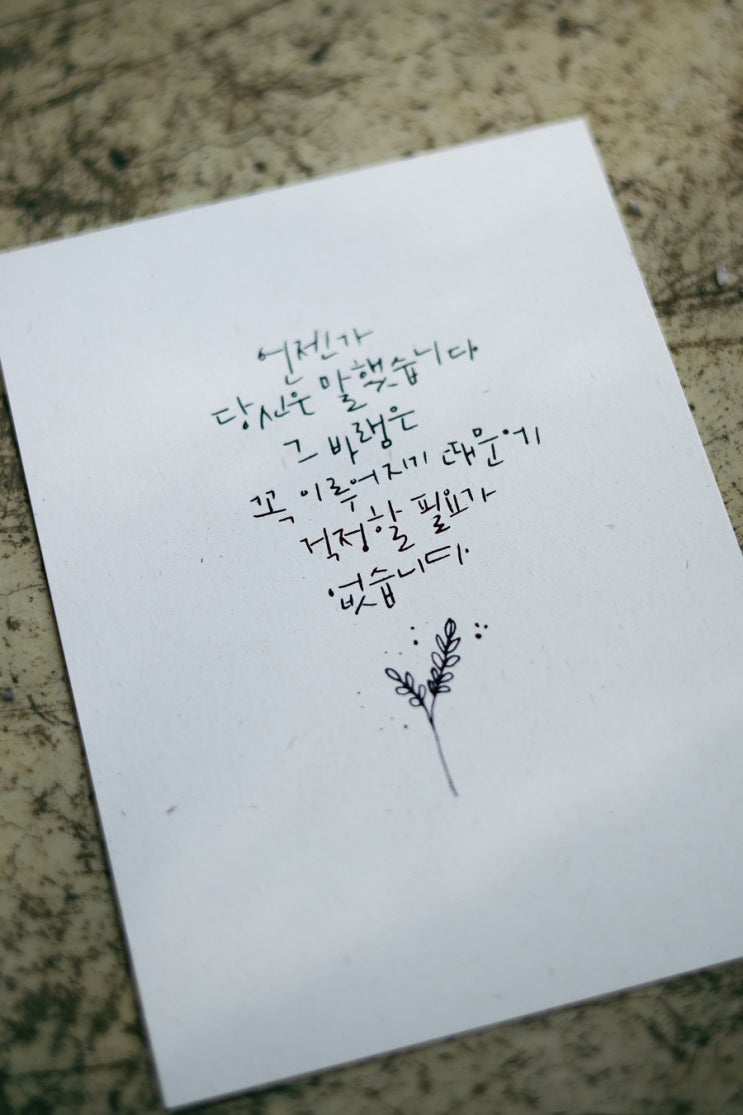 언젠가
당신은 말했습니다
그 바램은
꼭 이루어지기 때문에
걱정할 필요가
없습니다